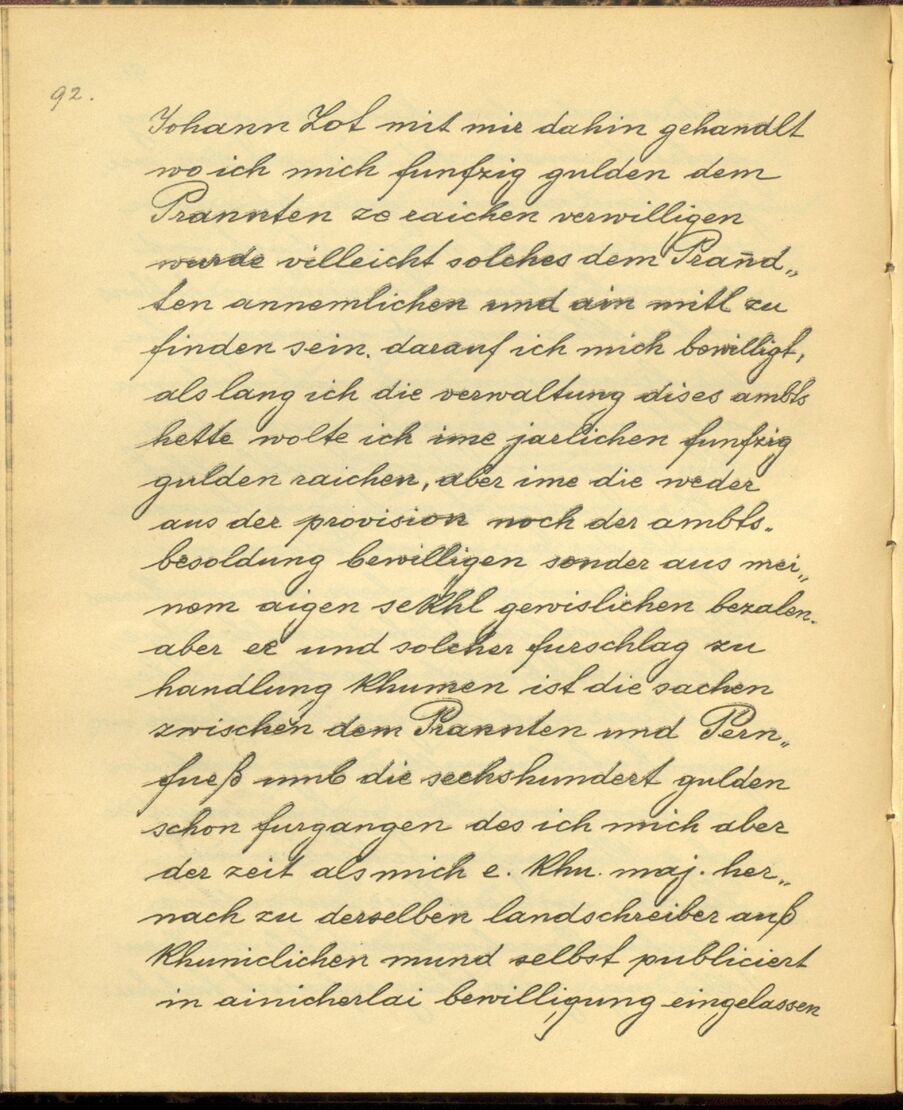 92.
Johann Zot mit mir dahin gehandlt
wo ich mich funfzig gulden dem
Prannten ze raichen verwilligen
wurde villeicht solches dem Prañd„
ten annemlichen und ain mitl zu
finden sein. darauf ich mich bewilligt,
als lang ich die verwaltung dises ambts
hette wolte ich ime jarlichen funfzig
gulden raichen, aber ime die weder
aus der provision noch der ambts„
besoldung bewilligen sonder aus mei„
nem aigen sekhl gewislichen bezalen.
aber er und solcher furschlag zu
handlung khumen ist die sachen
zwischen dem Prannten und Pern„
fueß umb die sechshundert gulden
schon furgangen des ich mich aber
der zeit als mich e. khu. maj. her„
nach zu derselben landschreiber auß
khuniclichen mund selbst publiciert
in ainicherlai bewilligung eingelassen